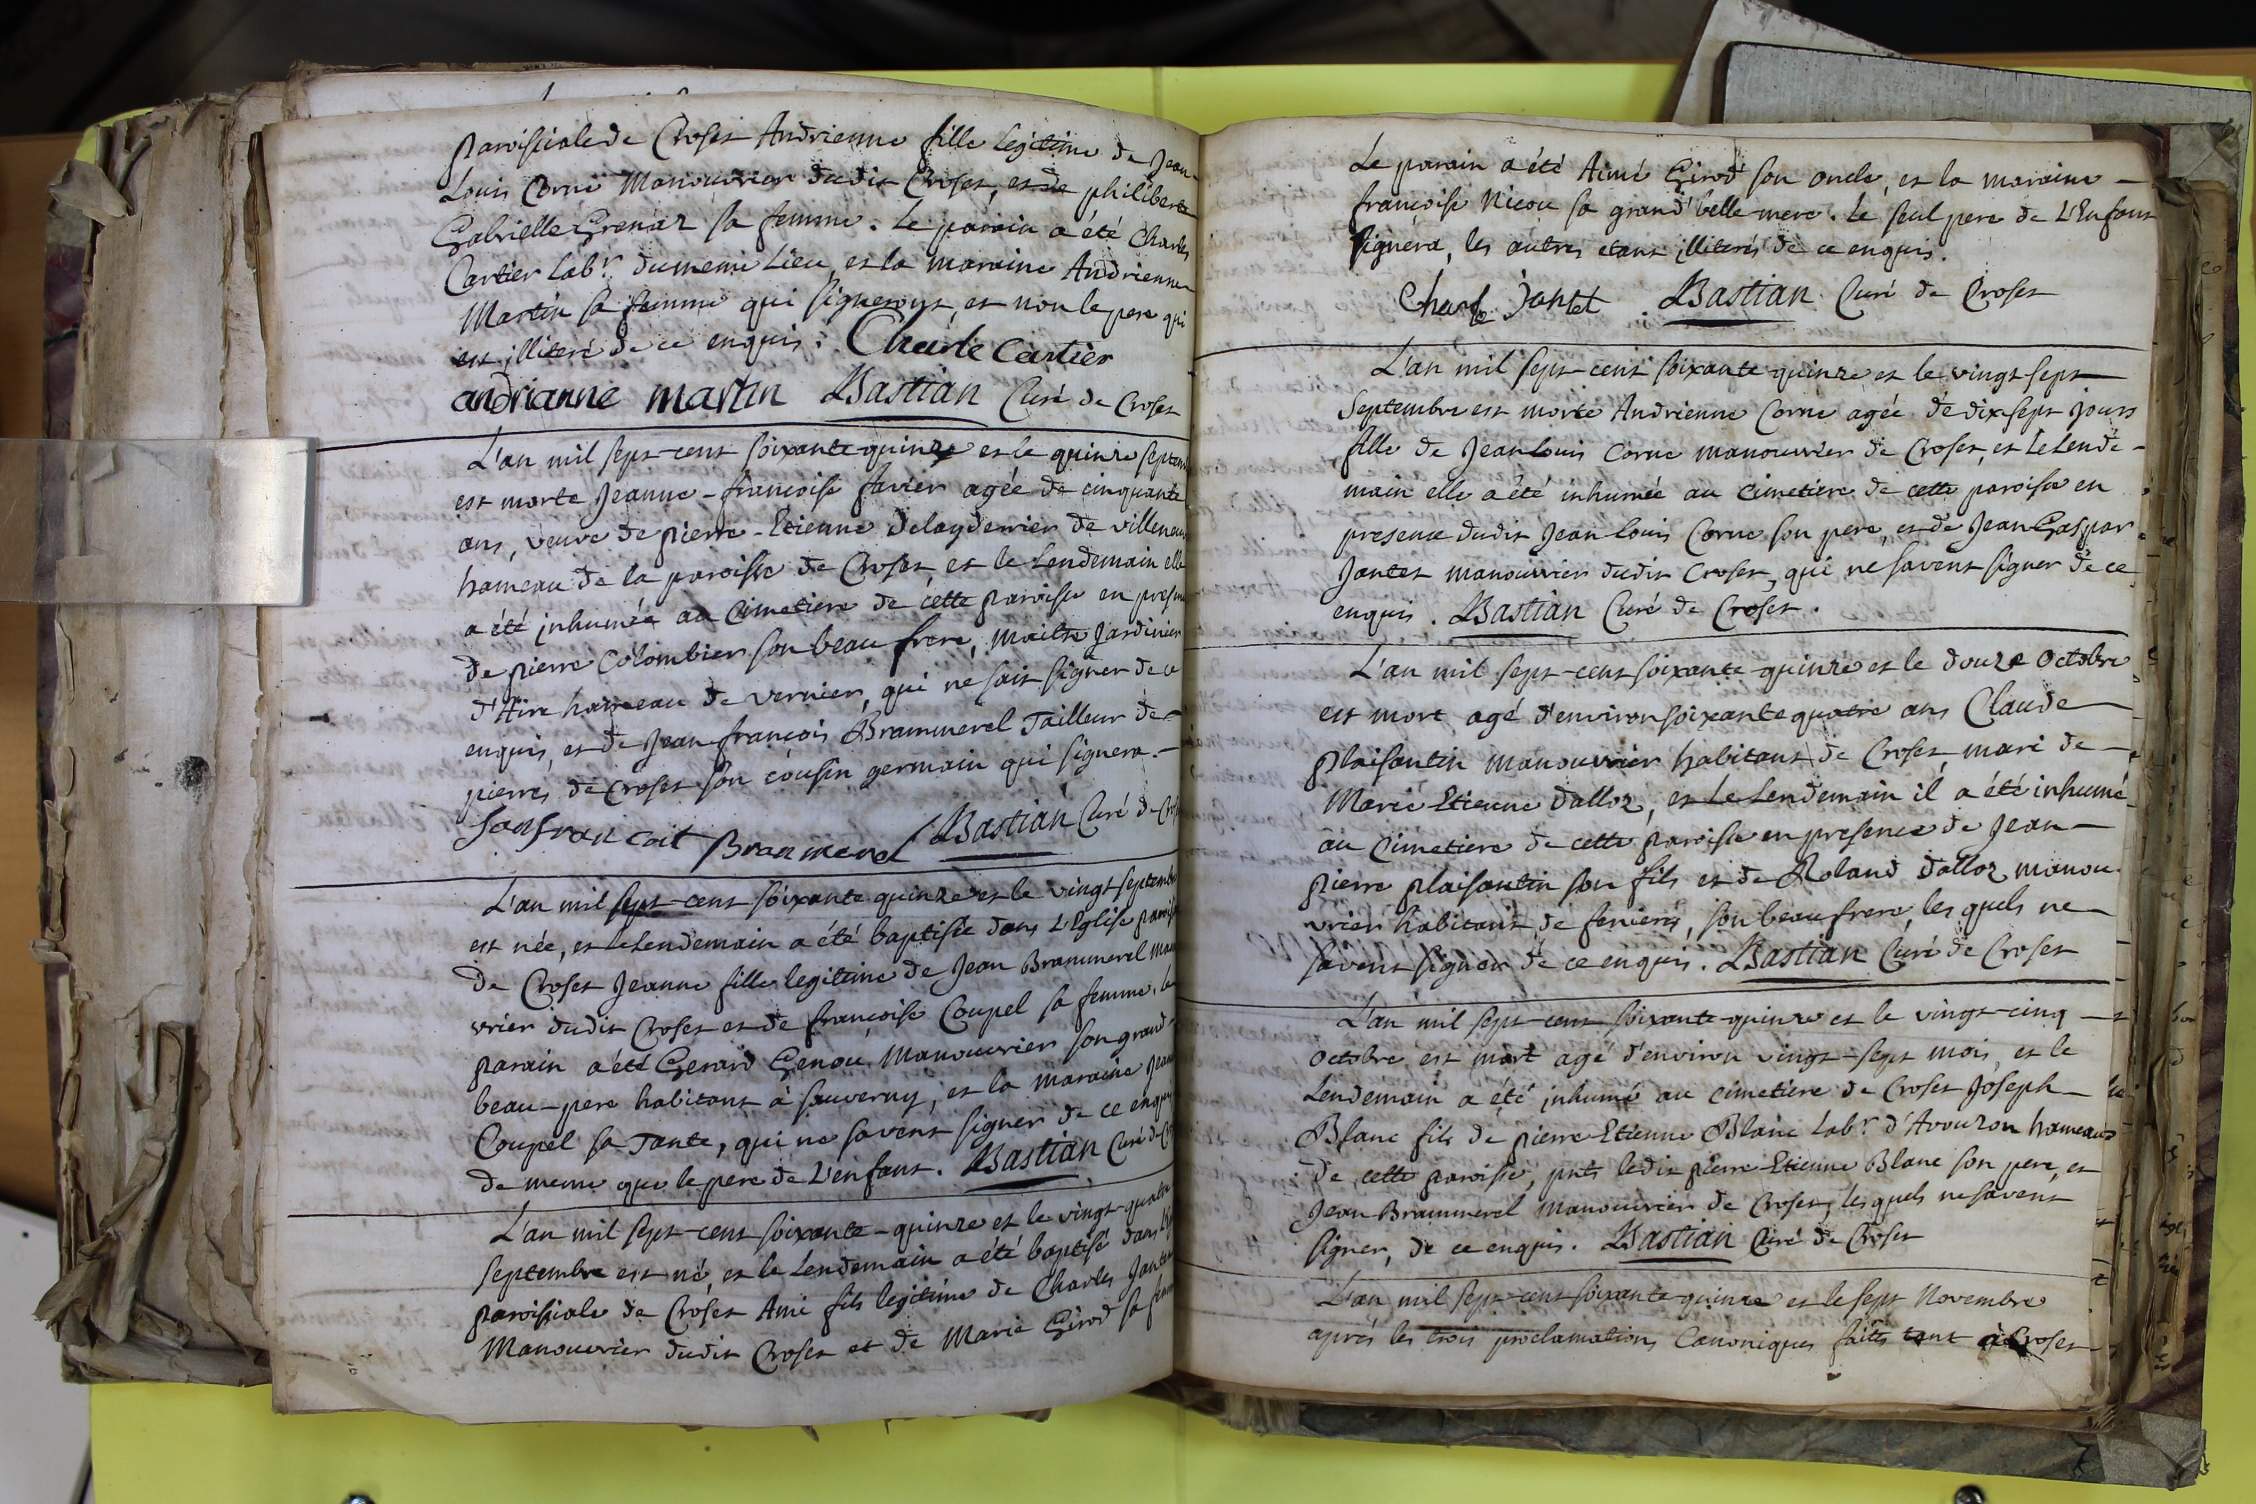 paroissiale de Croset Andrienne fille legitime de Jean
Louis Corne Manouvrier dudit Croset, et de philiberte
Gabrielle Grenaz sa femme. Le parain a été Charles
Cartier Labr. du meme Lieu et la maraine Andrienne
Martin sa femme qui signeront, et non le pere qui
est illiteré de ce enquis. Charle Cartier
andrianne martin Bastian Curé de Croset
L'an mil sept-cent soixante quinze et le quinze septem
est morte Jeanne-francoise favier agée de cinquante
ans, veuve de pierre-Etienne Delayderrier de villeneuv
hameau de la paroisse de Croset, et le Lendemain elle
a été inhumée au Cimetiere de cette paroisse en presen
de pierre Colombier son beau frere, maitre Jardinier
d'Aire hameau de vernier, qui ne sait signer de ce
enquis, et de Jean françois Brammerel Tailleur de
pierres de Croset son cousin germain qui signera.
Jan fran coit Brammerel Bastian Curé de Cros
L'an mil sept-cent soixante quinze et le vingt septemb
est née, et le Lendemain a été baptisée dans L'Eglise parois
de Croset Jeanne fille legitime de Jean Brammerel mano
vrier dudit Croset et de françoise Coupel sa femme. le
parain a été Gerard Genou Manouvrier son grand
beau-pere habitant à Sauverny, et la maraine Jean
Coupel sa Tante, qui ne savent signer de ce enqui
de meme que le pere de L'enfant. Bastian Curé de Cr
L'an mil sept-cent soixante-quinze et le vingt-quatre
septembre est né et le Lendemain a été baptisé dans l'E
paroissiale de Croset Amé fils legitime de Charles Janter
Manouvrier dudit Croset et de Marie Girod sa fem
Le parain a été Aimé Girod son oncle, et la maraine
françoise Nicou sa grand'belle-mere. Le seul pere de L'Enfant
signera, les autres etant illiterés de ce enquis.
Charle Jantet Bastian Curé de Croset
L'an mil sept-cent soixante quinze et le vingt sept
Septembre est morte Andrienne Corne agée de dix sept jours
fille de Jean Louis Corne manouvrier de Croset, et Le Lende-
main elle a été inhumée au Cimetiere de cette paroisse en
presence dudit Jean Louis Corne son pere, et de Jean Gaspar
Jantet manouvrier dudit Croset, qui ne savent signer de ce
enquis. Bastian Curé de Croset.
L'an mil sept-cent soixante-quinze et le douze Octobre
est mort agé d'environ soixante quatre ans Claude
plaisantin manouvrier habitant de Croset, mari de
Marie Etienne Dalloz, et Le Lendemain il a été inhumé
au Cimetiere de cette paroisse en presence de Jean
pierre plaisantin son fils et de Roland Dalloz manou
vrier habitant de fenieres, son beau frere, les quels ne
savent signer de ce enquis. Bastian Curé de Croset
L'an mil sept-cent soixante-quinze et le vingt-cinq
Octobre est mort agé d'environ vingt-sept mois, et le
Lendemain a été inhumé au cimetiere de Croset Joseph
Blanc fils de pierre-Etienne Blanc Labr. d'Avouzon hameau
de cette paroisse, pnts ledit pierre-Etienne Blanc son pere, et
Jean Brammerel manouvrier de Croset, les quels ne savent
signer, de ce enquis. Bastian Curé de Croset
L'an mil sept-cent soixante-quinze et le sept Novembre
aprés les trois proclamations Canoniques faites tant à Croset